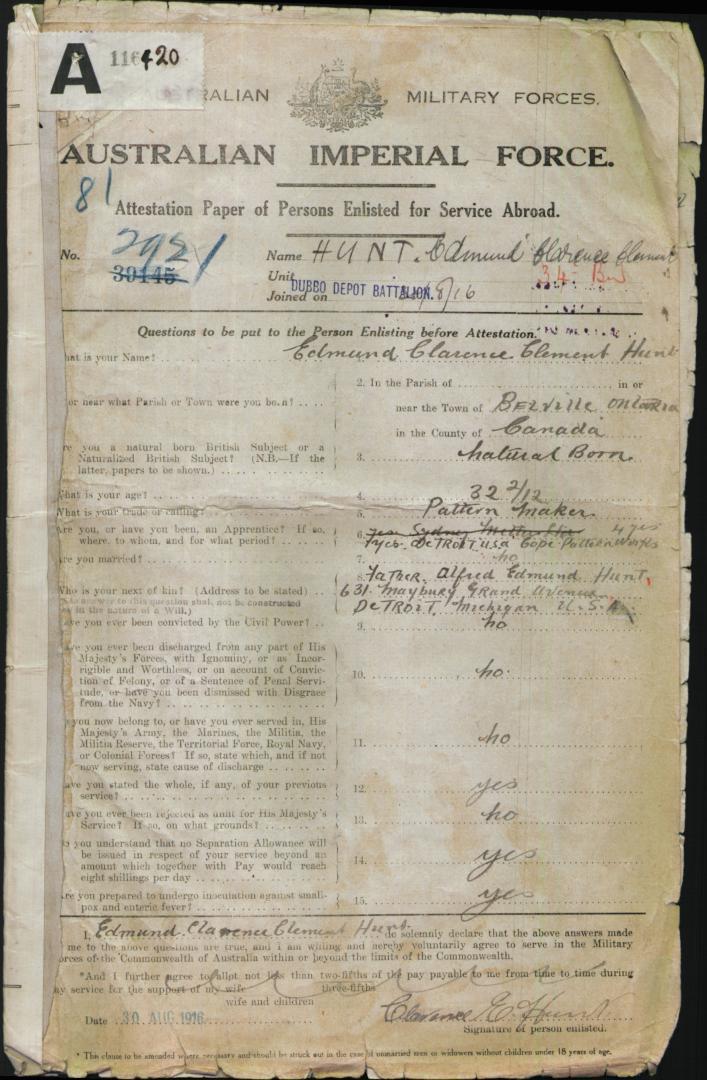 A 116420
RALIAN MILITARY FORCES.
AUSTRALIAN IMPERIAL FORCE.
81
Attestation Paper of Persons Enlisted for Service Abroad.
No. 2921 Name HUNT. Edmund Clarence Clement
39145 Unit 34 Bn
DUBBO DEPOT BATTALION.
Joined on /8/16
Questions to be put to the Person Enlisting before Attestation.
hat is your Name? Edmund Clarence Clement Hunt
2. In the Parish of in or
or near what Parish or Town were you born? near the Town of BELVille Ontario
in the County of Canada
re you a natural born British Subject or a
Naturalized British Subject? (N.B.—If the 3. Natural Born
latter, papers to be shown.)
What is your age? 4. 32 2/12
What is your trade or calling? 5. Pattern Maker
Are you, or have you been, an Apprentice? If so, 6. yes. Sydney 4 yrs
where, to whom, and for what period? DeTROIT USA Cope Pattern Works
re you married? 7. no
8. Father. Alfred Edmund Hunt,
Who is your next of kin? (Address to be stated) 631 Maybury Grand Avenue
(The answer to this question shall not be constructed
as in the nature of a Will.) DeTROIT, Michigan U.S.A
ave you ever been convicted by the Civil Power? 9. no
ve you ever been discharged from any part of His
Majesty's Forces, with Ignominy, or as Incor-
rigible and Worthless, or on account of Convic-
tion of Felony, or of a Sentence of Penal Servi- 10. no.
tude, or have you been dismissed with Disgrace
from the Navy?
you now belong to, or have you ever served in, His
Majesty's Army, the Marines, the Militia, the
Militia Reserve, the Territorial Force, Royal Navy, 11. no
or Colonial Forces? If so, state which, and if not
now serving, state cause of discharge
ave you stated the whole, if any, of your previous 12. yes
service?
ave you ever been rejected as unfit for His Majesty's 13. no
Service? If so, on what grounds?
o you understand that no Separation Allowance will
be issued in respect of your service beyond an
amount which together with Pay would reach 14. yes
eight shillings per day
Are you prepared to undergo inoculation against small- 15. yes
pox and enteric fever?
I, Edmund Clarence Clement Hunt do solemnly declare that the above answers made
me to the above questions are true, and I am willing and hereby voluntarily agree to serve in the Military
orces of the Commonwealth of Australia within or beyond the limits of the Commonwealth.
*And I further agree to allot not less than two-fifths of the pay payable to me from time to time during
three-fifths
y service for the support of my wife
wife and children
Date 30 AUG 1916 Clarence E. Hunt
Signature of person enlisted.
* This clause to be amended where necessary and should be struck out in the case of unmarried men or widowers without children under 18 years of age.